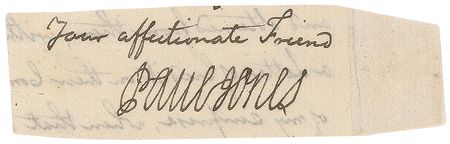 Your affectionate Friend
Paul Jones